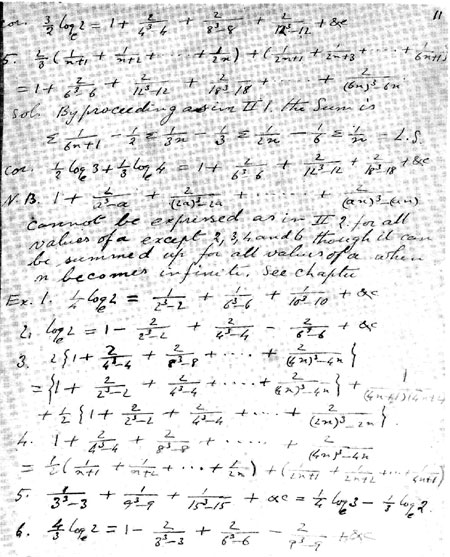 11
Cor. 3/2 log_e 2 = 1 + 2/(4³-4) + 2/(8³-8) + 2/(12³-12) + &c
5. 2/3 (1/(n+1) + 1/(n+2) + ... + 1/(2n)) + (1/(2n+1) + 1/(2n+3) + ... + 1/(6n+1))
= 1 + 2/(6³-6) + 2/(12³-12) + 2/(18³-18) + ... + 2/((6n)³-6n)
Sol. By proceeding as in II 1. the Sum is
Σ 1/(6n+1) - 1/2 Σ 1/(3n) - 1/3 Σ 1/(2n) - 1/6 Σ 1/n = L.S.
Cor. 1/2 log_e 3 + 1/3 log_e 4 = 1 + 2/(6³-6) + 2/(12³-12) + 2/(18³-18) + &c
N.B. 1 + 2/(a³-a) + 2/((2a)³-2a) + ... + 2/((an)³-(an))
cannot be expressed as in II 2. for all
values of a except 2, 3, 4 and 6 though it can
be summed up for all values of a when
n becomes infinite. See chapter
Ex. 1. 1/4 log_e 2 = 1/(2³-2) + 1/(6³-6) + 1/(10³-10) + &c
2. log_e 2 = 1 - 2/(2³-2) + 2/(4³-4) - 2/(6³-6) + &c
3. 2{1 + 2/(4³-4) + 2/(8³-8) + ... + 2/((4n)³-4n)}
= {1 + 2/(2³-2) + 2/(4³-4) + ... + 2/((4n)³-4n)} +
+ 1/2 {1 + 2/(2³-2) + 2/(4³-4) + ... + 2/((2n)³-2n)}.
4. 1 + 2/(4³-4) + 2/(8³-8) + ... + 2/((4n)³-4n)
= 1/2 (1/(n+1) + 1/(n+2) + ... + 1/(2n)) + (1/(2n+1) + 1/(2n+2) + ... + 1/(4n+1))
5. 1/(3³-3) + 1/(9³-9) + 1/(15³-15) + &c = 1/4 log_e 3 - 1/3 log_e 2.
6. 4/3 log_e 2 = 1 - 2/(3³-3) + 2/(6³-6) - 2/(9³-9) + &c